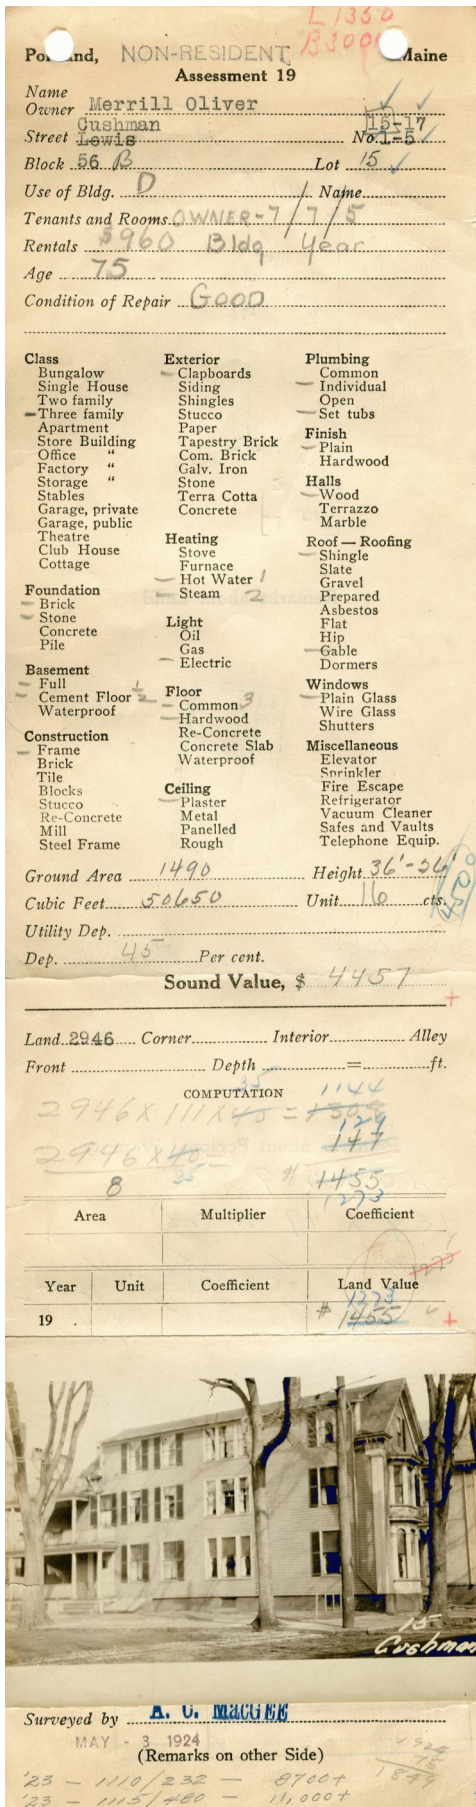 L 1350
B 3000
Portland, NON-RESIDENT Maine
Assessment 19
Name
Owner Merrill Oliver
Cushman 15-17
Street Lewis No. 1-5
Block 56 B Lot 15
Use of Bldg. D Name
Tenants and Rooms OWNER-7/7/5
Rentals $960 Bldg Year
Age 75
Condition of Repair GOOD
Class
Bungalow
Single House
Two family
Three family
Apartment
Store Building
Office "
Factory "
Storage "
Stables
Garage, private
Garage, public
Theatre
Club House
Cottage
Foundation
Brick
Stone
Concrete
Pile
Basement
Full
Cement Floor 1/2
Waterproof
Construction
Frame
Brick
Tile
Blocks
Stucco
Re-Concrete
Mill
Steel Frame
Exterior
Clapboards
Siding
Shingles
Stucco
Paper
Tapestry Brick
Com. Brick
Galv. Iron
Stone
Terra Cotta
Concrete
Heating
Stove
Furnace
Hot Water 1
Steam 2
Light
Oil
Gas
Electric
Floor
Common 3
Hardwood
Re-Concrete
Concrete Slab
Waterproof
Ceiling
Plaster
Metal
Panelled
Rough
Plumbing
Common
Individual
Open
Set tubs
Finish
Plain
Hardwood
Halls
Wood
Terrazzo
Marble
Roof — Roofing
Shingle
Slate
Gravel
Prepared
Asbestos
Flat
Hip
Gable
Dormers
Windows
Plain Glass
Wire Glass
Shutters
Miscellaneous
Elevator
Sprinkler
Fire Escape
Refrigerator
Vacuum Cleaner
Safes and Vaults
Telephone Equip.
Ground Area 1490 Height 36'-26'
Cubic Feet 50650 Unit 16 cts.
Utility Dep.
Dep. 45 Per cent.
Sound Value, $ 4457
Land 2946 Corner Interior Alley
Front Depth = ft.
COMPUTATION
35 1144
2946 x 111 x 40 = 1308
129
2946 x 40 = 147
8 35 # 1455
1273
Area Multiplier Coefficient
Year Unit Coefficient Land Value
1273
19 . # 1455
15
Cushman
Surveyed by A. C. MacGEE
MAY - 3 1924
(Remarks on other Side)
1924
75
1849
'23 - 1110/232 - 8700+
'23 - 1115/480 - 11,000+